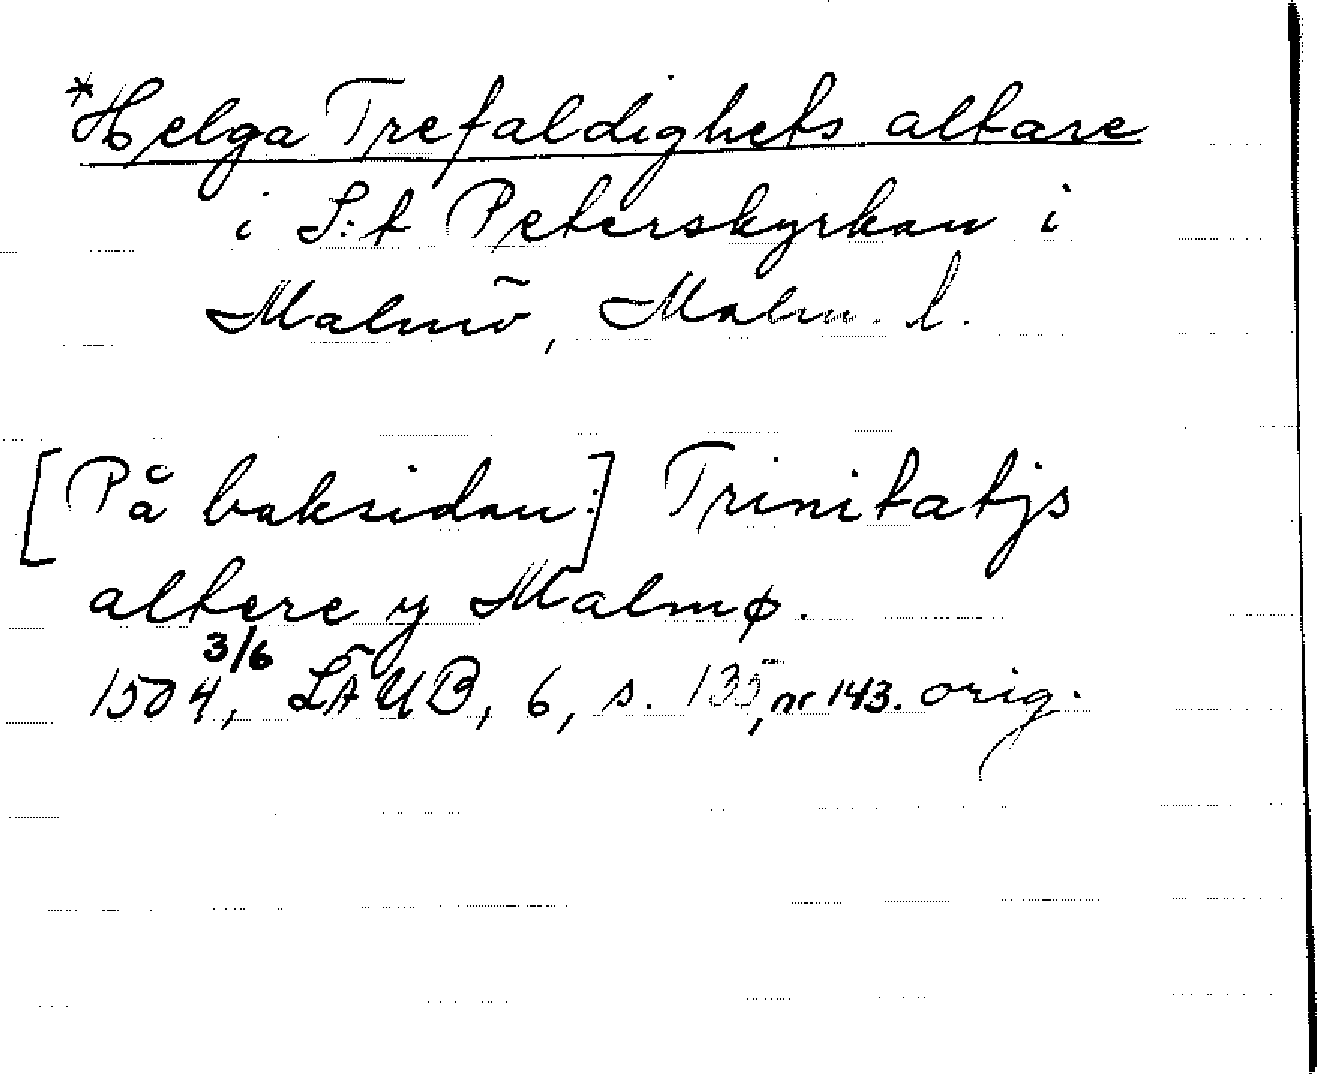 *Helga Trefaldighets altare
i S:t Peterskyrkan i
Malmö, Malm. l.
[På baksidan:] Trinitatjs
altere y Malmø.
1504 3/6, LÄUB, 6, s. 135, nr 143. orig.